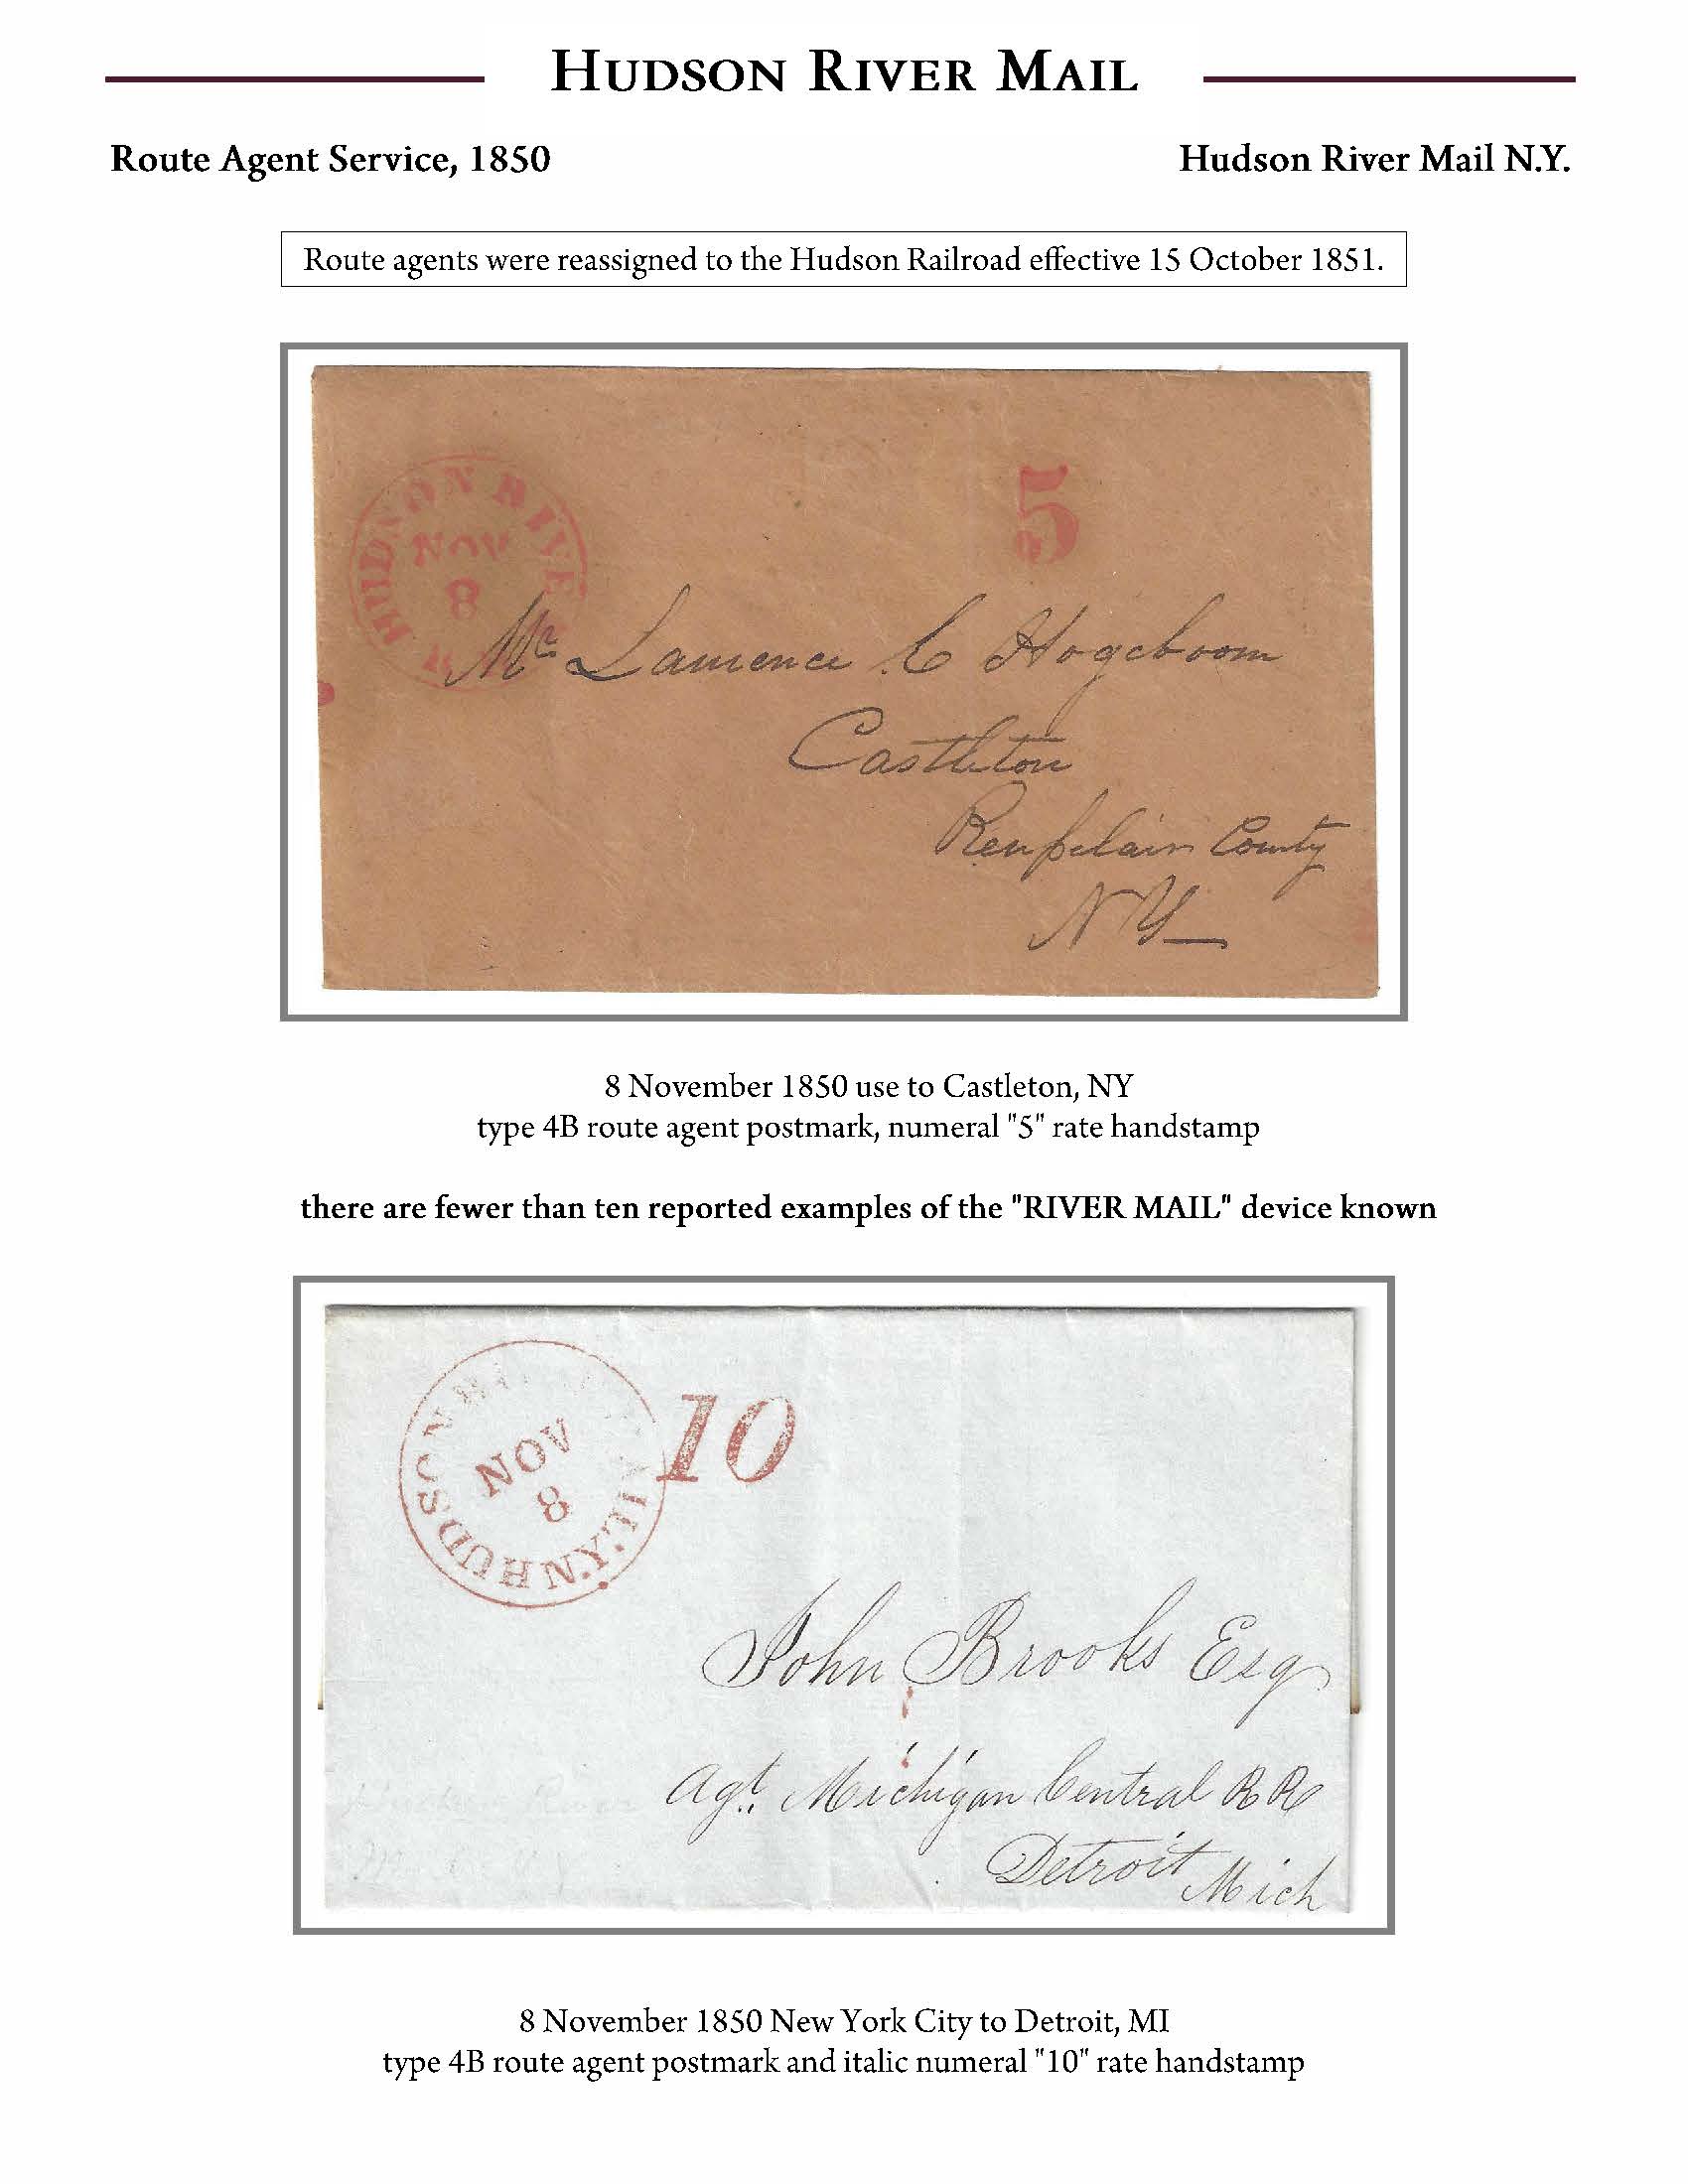 HUDSON RIVER MAIL
Route Agent Service, 1850
Hudson River Mail N.Y.
Route agents were reassigned to the Hudson Railroad effective 15 October 1851.
HUDSON RIVE
NOV
8
5
Mr Lawrence C Hogeboom
Castleton
Rensselair County
NY
8 November 1850 use to Castleton, NY
type 4B route agent postmark, numeral "5" rate handstamp
there are fewer than ten reported examples of the "RIVER MAIL" device known
HUDSON
NOV
8
IL.
N.Y.
10
John Brooks Esq
Agt. Michigan Central RR
Detroit Mich
8 November 1850 New York City to Detroit, MI
type 4B route agent postmark and italic numeral "10" rate handstamp